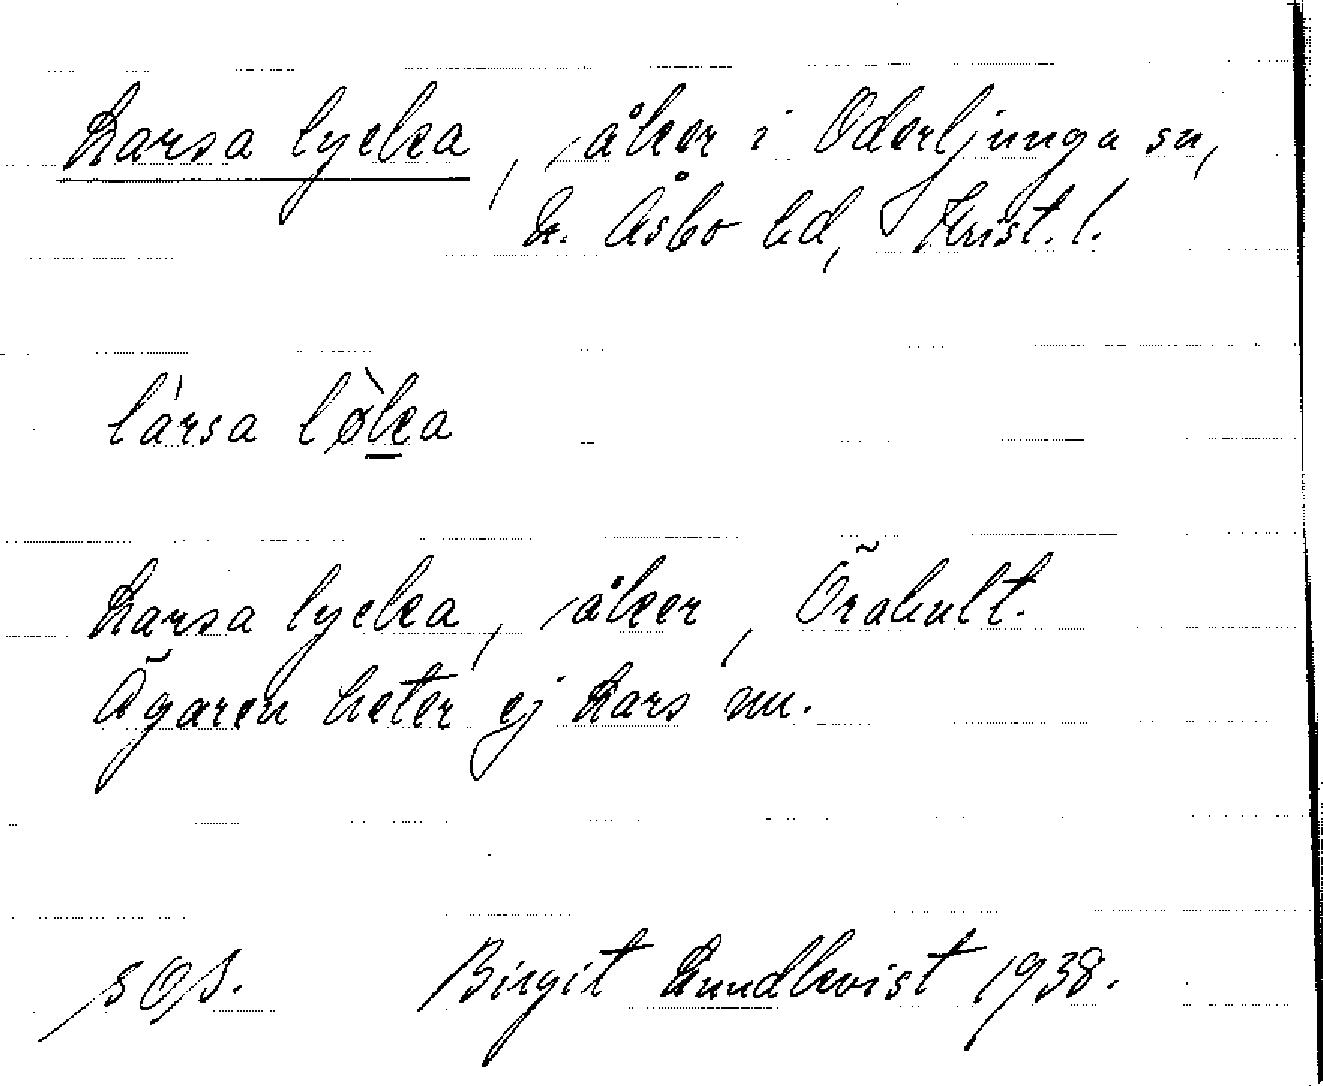 Larsa lycka, åker i Oderljunga sn,
N. Åsbo hd, Krist. l.
lársa lø̀ka
Larsa lycka, åker, Örahult.
Ägaren heter ej Lars nu.
SOS. Birgit Lundkvist 1938.